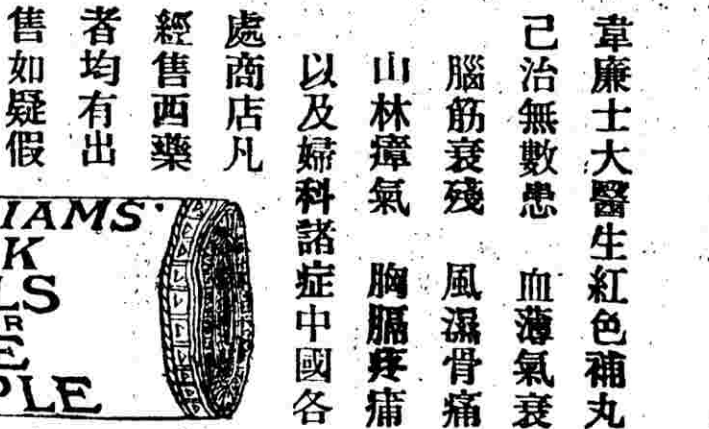 韋廉士大醫生紅色補丸
己治無數患 血薄氣衰
腦筋衰殘 風濕骨痛
山林瘴氣 胸膈疼痛
以及婦科諸症中國各
處商店凡
經售西藥
者均有出
售如疑假
IAMS'
K
LS
R
E
PLE